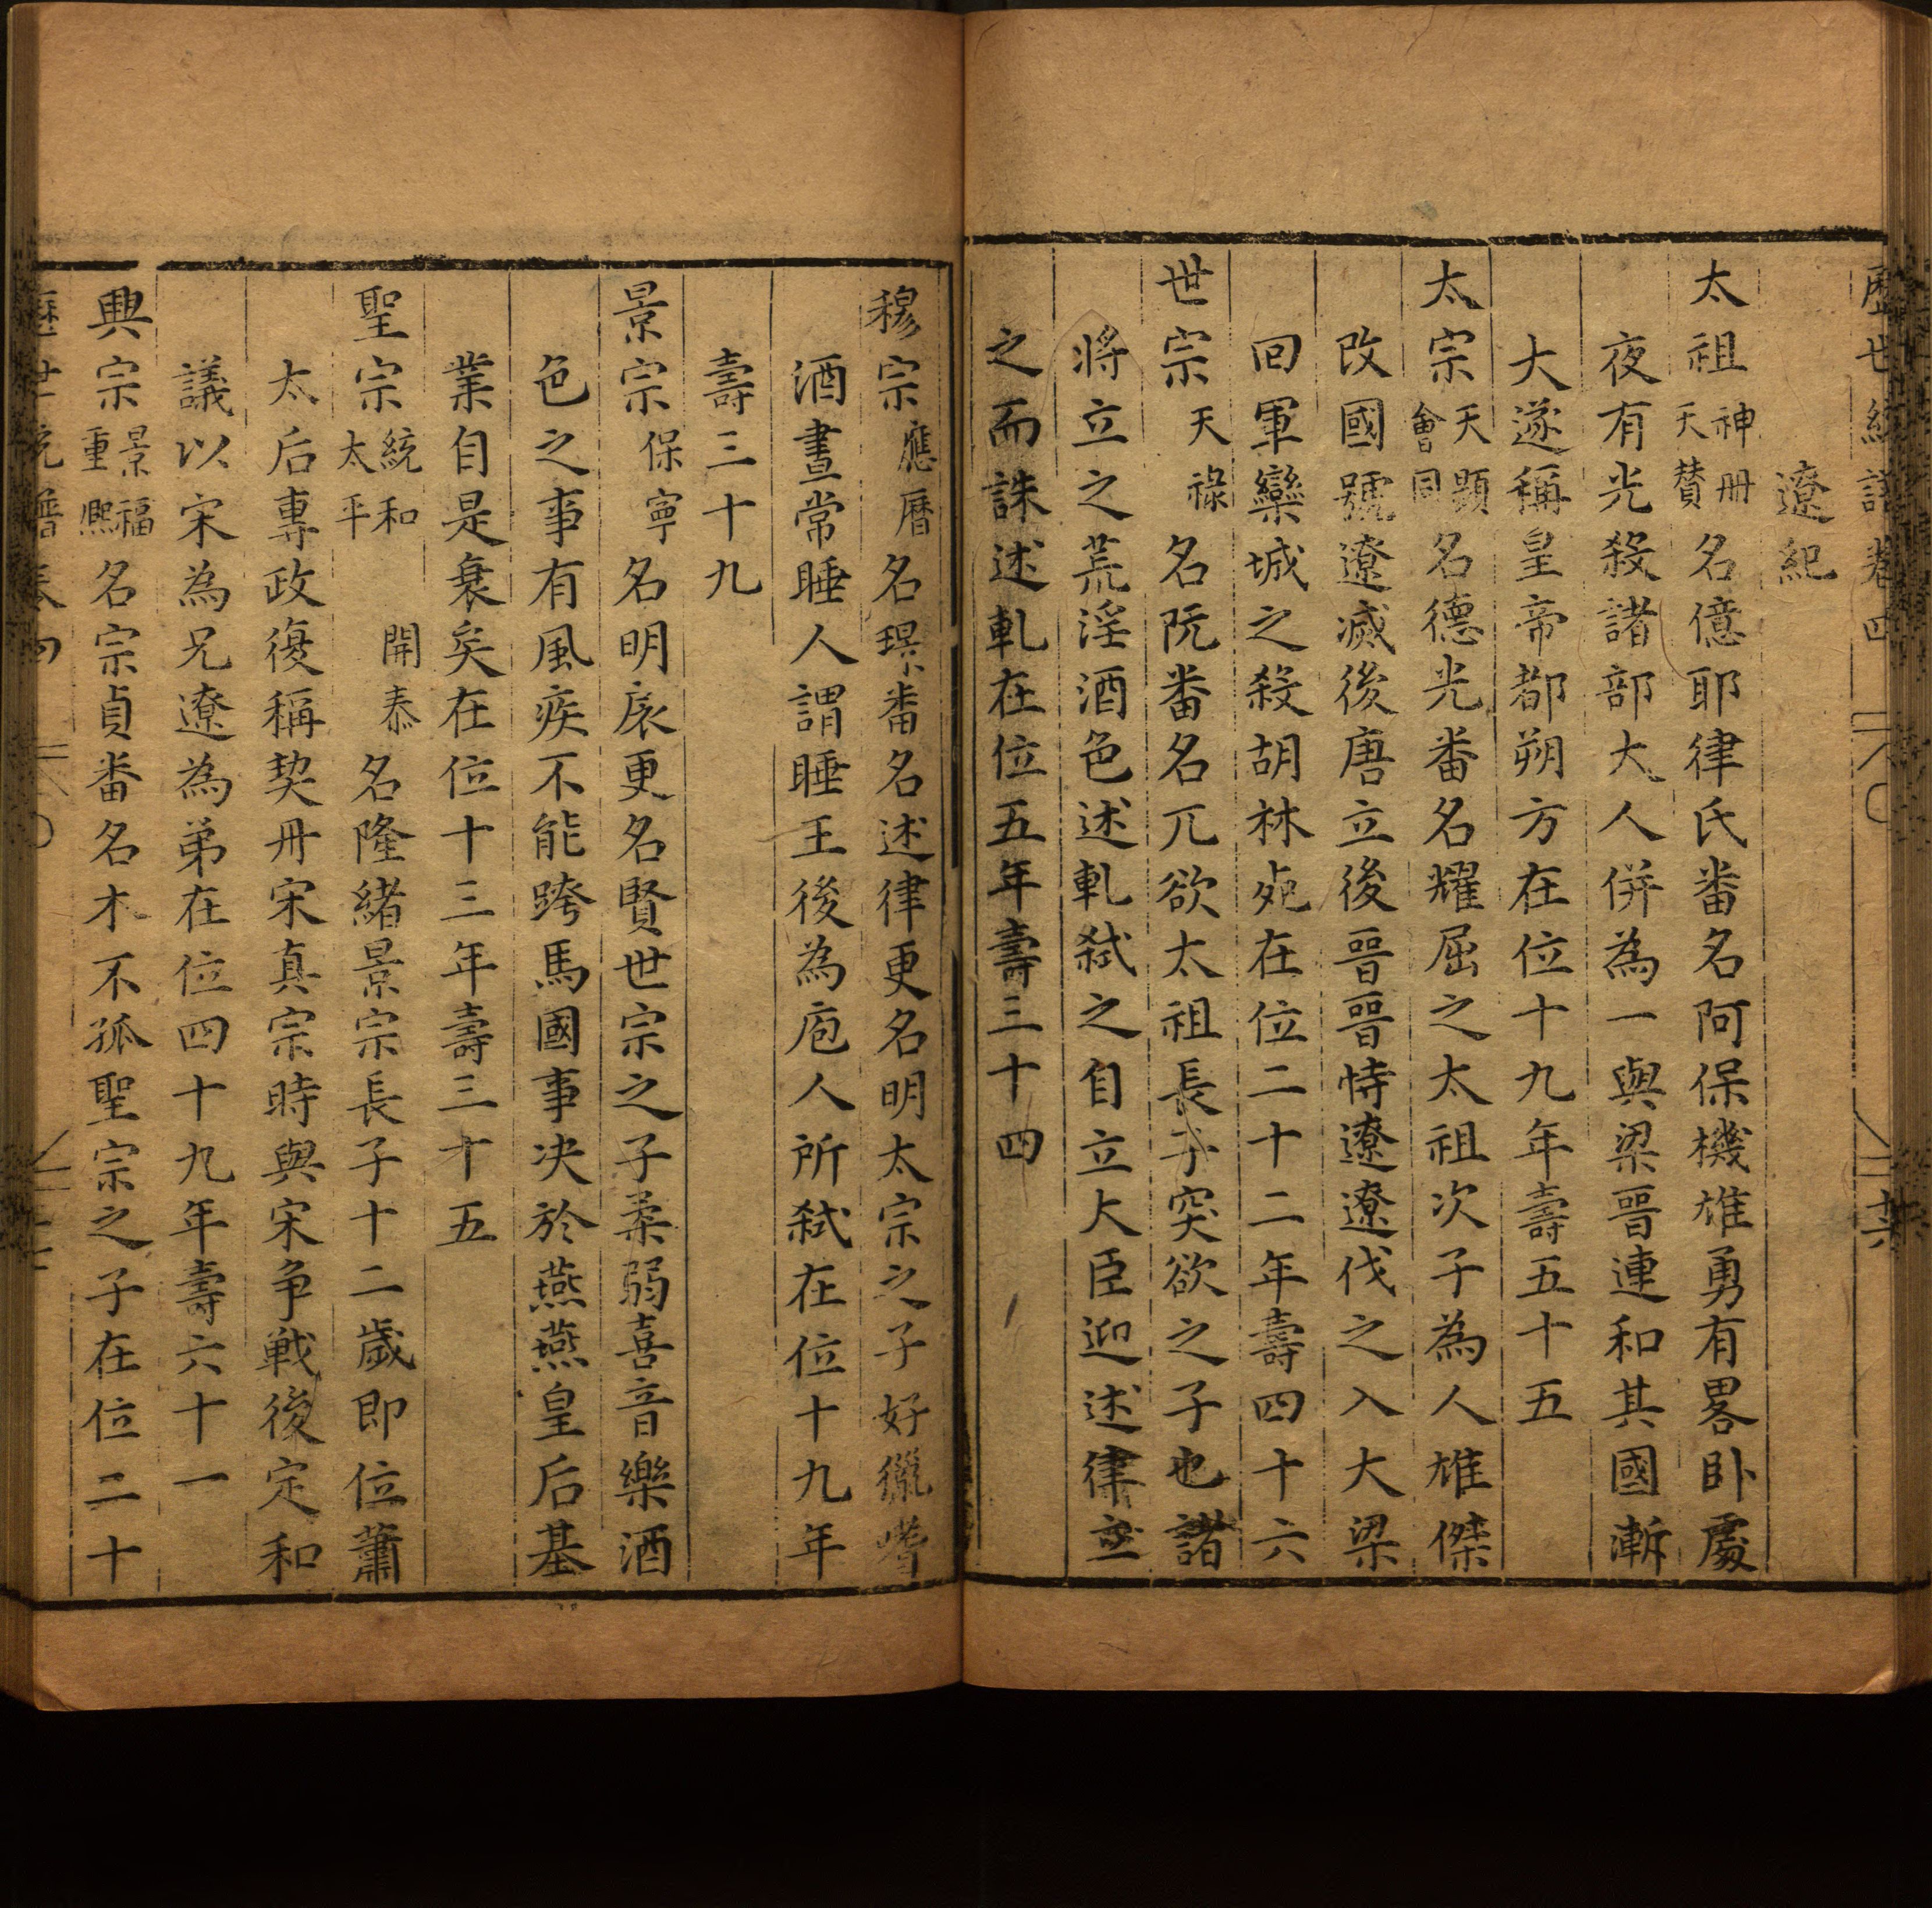 歷世統譜卷四
遼紀
太祖神冊天贊名億耶律氏番名阿保機雄勇有畧卧處
夜有光殺諸部大人併為一與梁晉連和其國漸
大遂稱皇帝都朔方在位十九年壽五十五
太宗天顯會同名德光番名耀屈之太祖次子為人雄傑
改國號遼滅後唐立後晉晉恃遼遼伐之入大梁
回軍欒城之殺胡林死在位二十二年壽四十六
世宗天祿名阮番名兀欲太祖長子突欲之子也諸
將立之荒淫酒色述軋弑之自立大臣迎述律立
之而誅述軋在位五年壽三十四
穆宗應曆名璟番名述律更名明太宗之子好獵嗜
酒晝常睡人謂睡王後為庖人所弑在位十九年
壽三十九
景宗保寧名明扆更名賢世宗之子柔弱喜音樂酒
色之事有風疾不能跨馬國事决於燕燕皇后基
業自是衰矣在位十三年壽三十五
聖宗統和太平開泰名隆緒景宗長子十二歲即位蕭
太后專政復稱契丹宋真宗時與宋争戰後定和
議以宋為兄遼為弟在位四十九年壽六十一
興宗景福重熈名宗貞番名木不孤聖宗之子在位二十
歷世統譜卷四